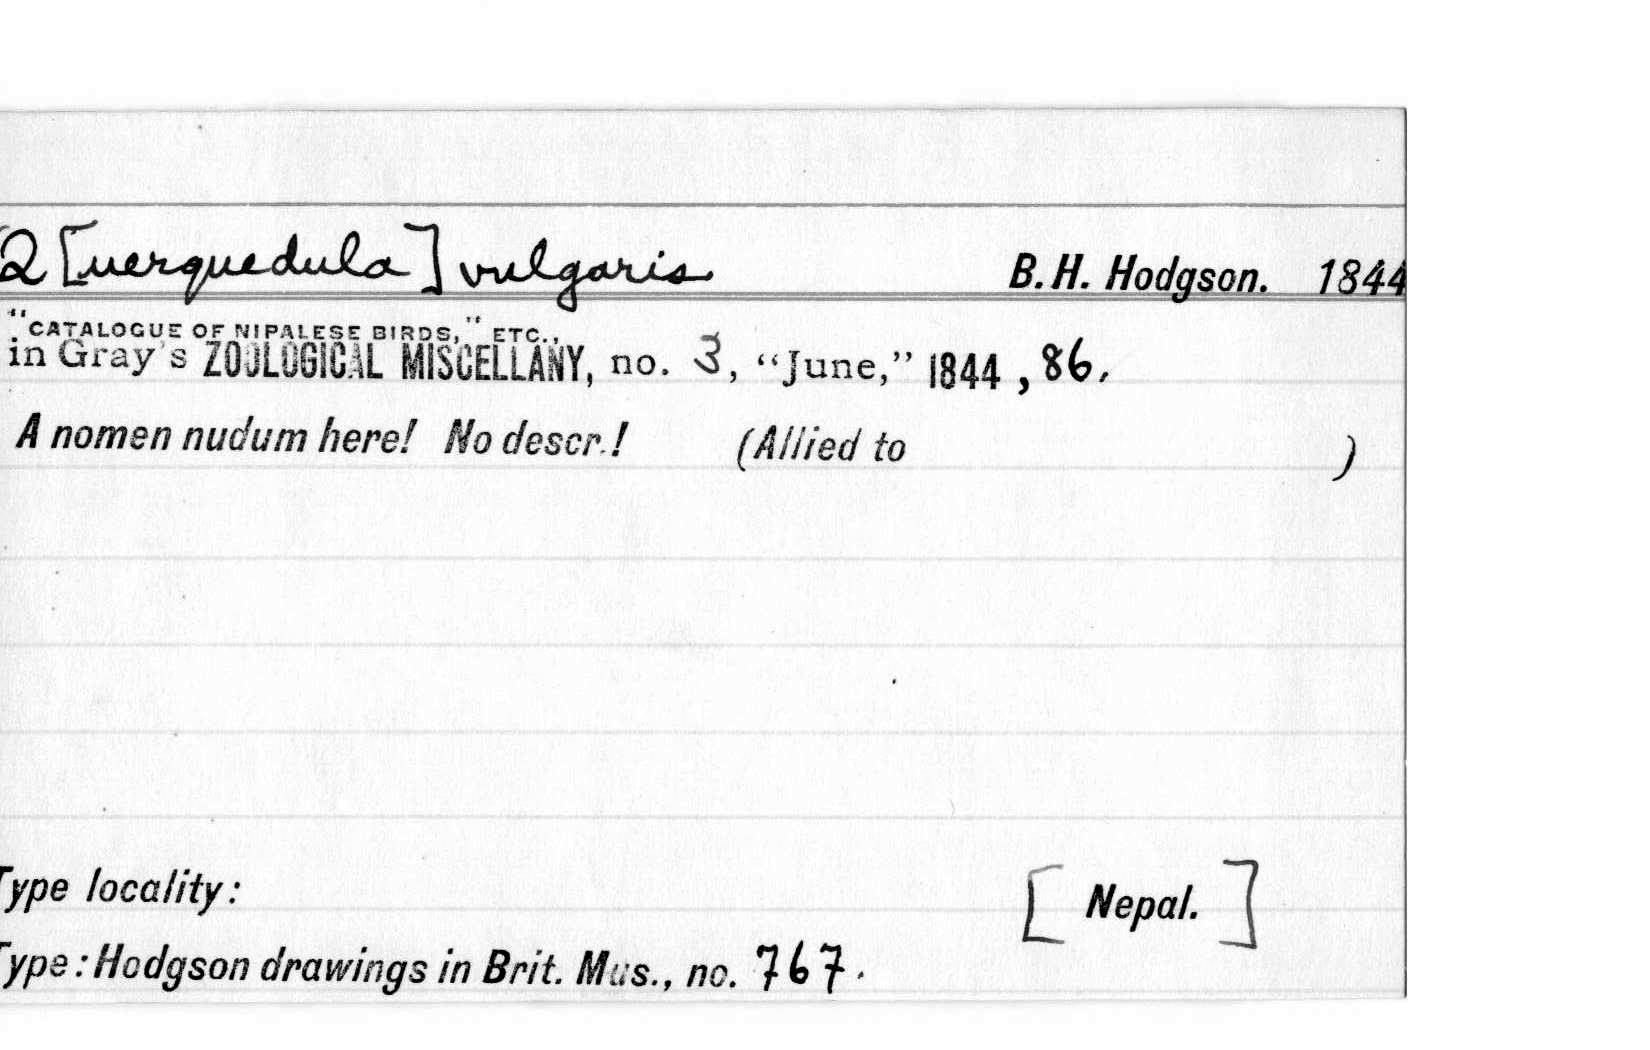 Q[uerquedula] vulgaris B. H. Hodgson. 1844
"CATALOGUE OF NIPALESE BIRDS," ETC.,
in Gray's ZOOLOGICAL MISCELLANY, no. 3, "June," 1844, 86.
A nomen nudum here! No descr.! (Allied to )
Type locality: [Nepal.]
Type: Hodgson drawings in Brit. Mus., no. 767.